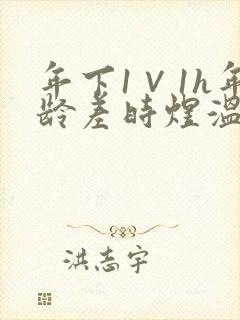 年下1V1h年
龄差时煜温
洪志宇